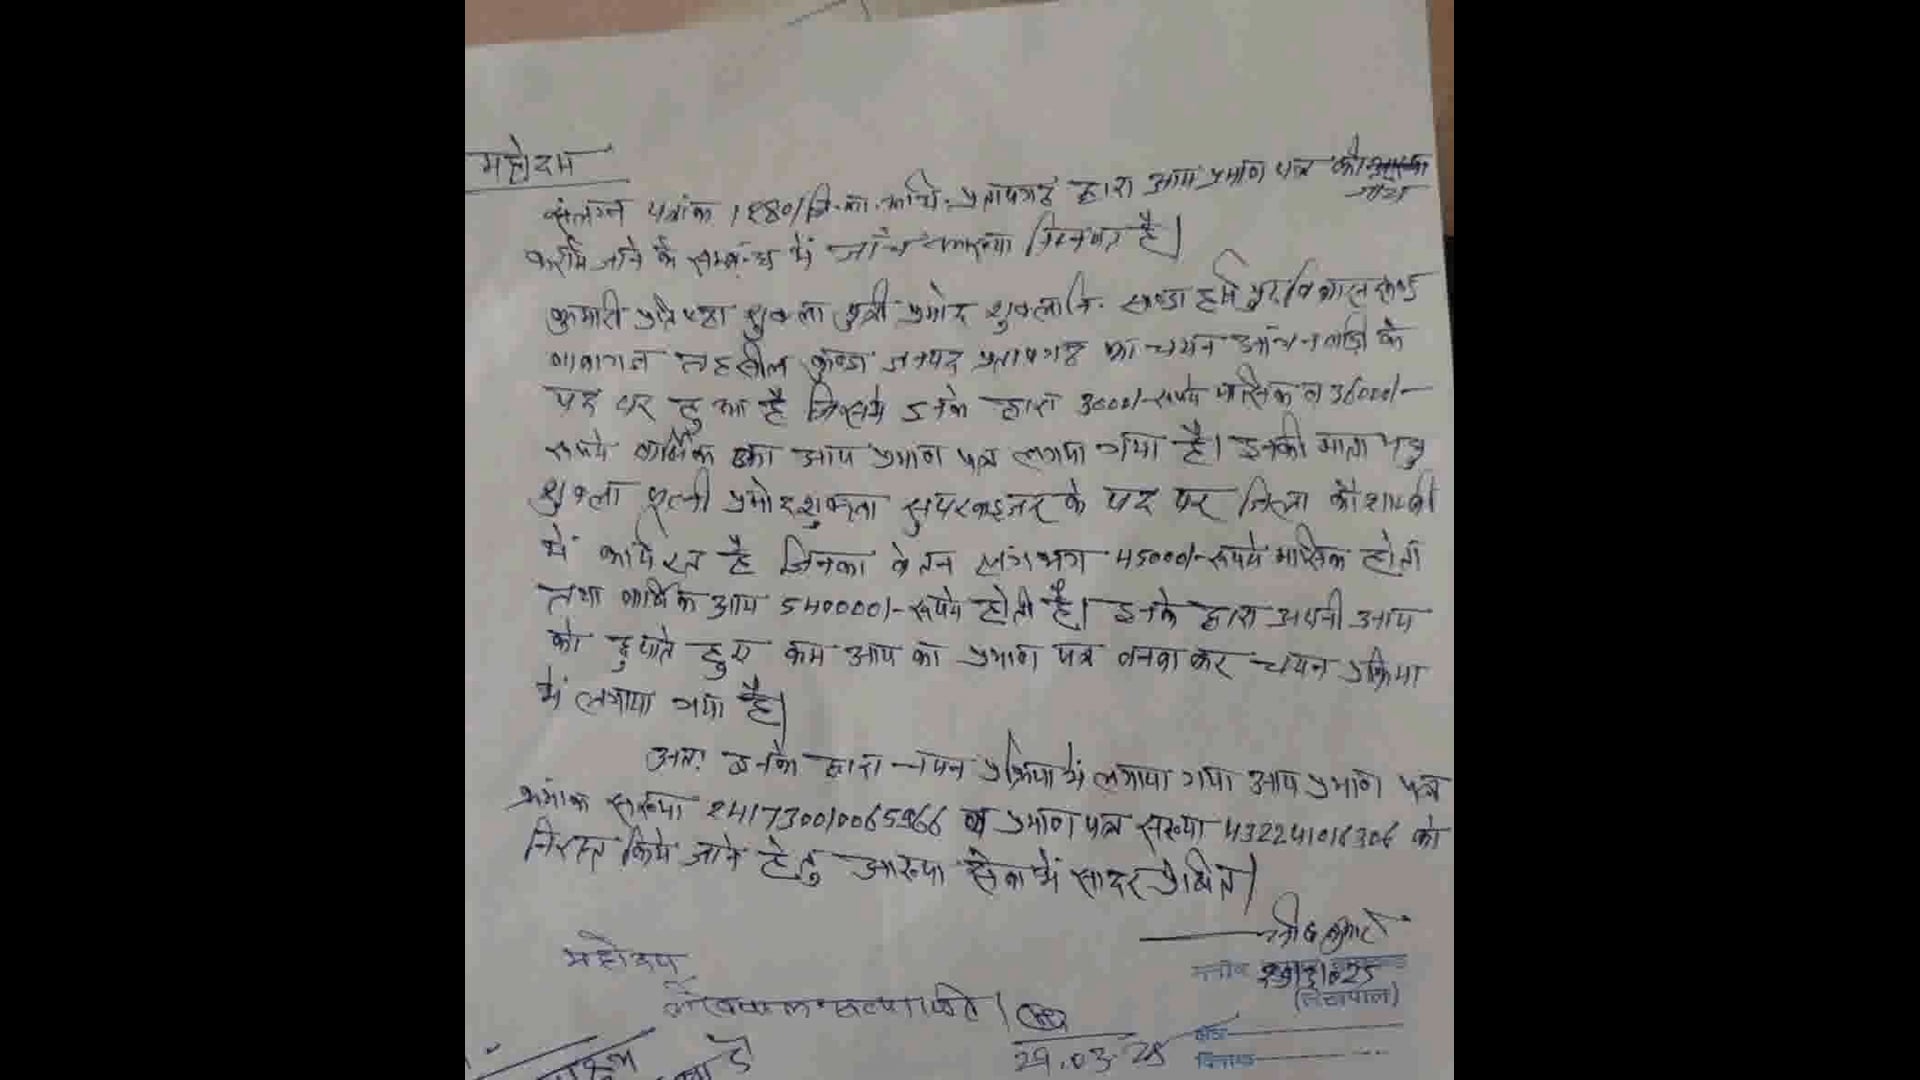 महोदय
संलग्न पत्रांक 1280/जि.का.अधि. प्रतापगढ़ द्वारा आय प्रमाण पत्र की
जांच
कराये जाने के सम्बन्ध में जाँच आख्या निम्नवत है।
कुमारी शुक्ला पुत्री प्रमोद शुक्ला नि. विकास खण्ड
तहसील कुण्डा जनपद प्रतापगढ का चयन आंगनवाड़ी के
पद पर हुआ है जिसमें इनके द्वारा 3000/- रूपये मासिक व 36000/-
रूपये वार्षिक का आय प्रमाण पत्र लगाया गया है। इनकी माता मंजु
शुक्ला पत्नी प्रमोद शुक्ला सुपरवाइजर के पद पर जिला कौशाम्बी
में कार्यरत है जिनका वेतन लगभग 45000/- रूपये मासिक होता
तथा वार्षिक आय 540000/- रूपये होती है। इनके द्वारा अपनी आय
को छुपाते हुए कम आय का प्रमाण पत्र बनवा कर चयन प्रक्रिया
में लगाया गया है।
अतः इनके द्वारा चयन प्रक्रिया में लगाया गया आय प्रमाण पत्र
क्रमांक संख्या 241730010065966 व प्रमाण पत्र संख्या 432241016306 को
निरस्त किये जाने हेतु आख्या सेवा में सादर प्रेषित।
(लेखपाल)
महोदय
29.03.25
क्षेत्र
दिनांक